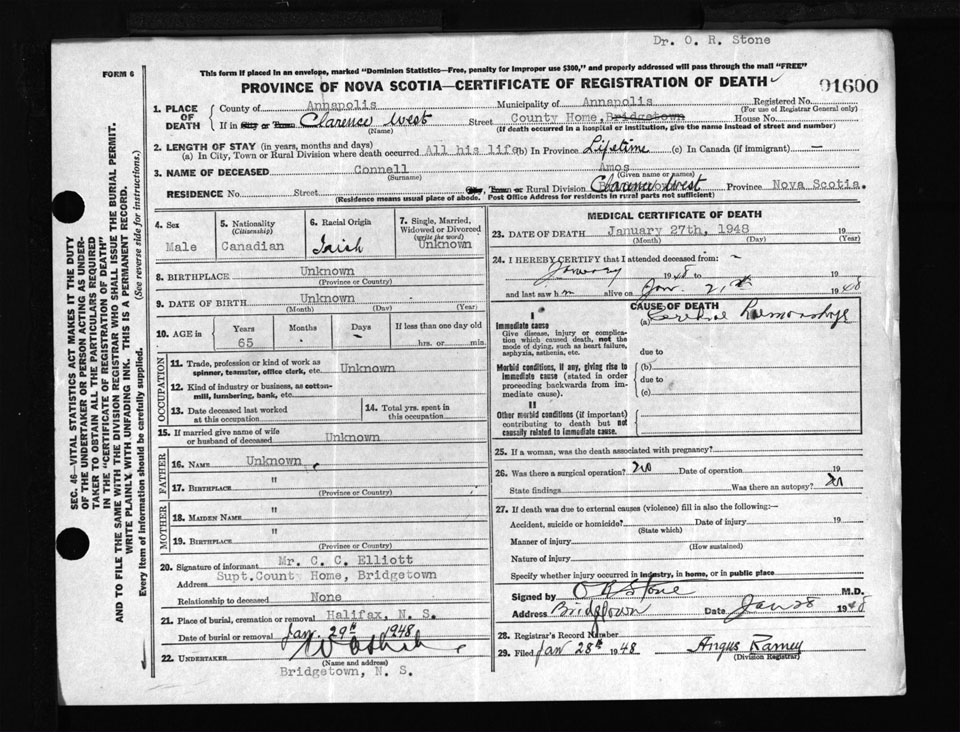 Dr. O. R. Stone
FORM 6
This form if placed in an envelope, marked "Dominion Statistics—Free, penalty for improper use $300," and properly addressed will pass through the mail "FREE"
PROVINCE OF NOVA SCOTIA—CERTIFICATE OF REGISTRATION OF DEATH
01600
1. PLACE OF DEATH
County of Annapolis Municipality of Annapolis Registered No.
(For use of Registrar General only)
If in City or Town Clarence West Street County Home, Bridgetown House No.
(Name) (If death occurred in a hospital or institution, give the name instead of street and number)
2. LENGTH OF STAY (in years, months and days)
(a) In City, Town or Rural Division where death occurred All his life (b) In Province Lifetime (c) In Canada (if immigrant) —
3. NAME OF DECEASED Connell Amos
(Surname) (Given name or names)
RESIDENCE No. Street City, Town or Rural Division Clarence West Province Nova Scotia.
(Residence means usual place of abode. Post Office Address for residents in rural parts not sufficient)
4. Sex
Male
5. Nationality
(Citizenship)
Canadian
6. Racial Origin
Irish
7. Single, Married,
Widowed or Divorced
(write the word)
Unknown
8. BIRTHPLACE Unknown
(Province or Country)
9. DATE OF BIRTH Unknown
(Month) (Day) (Year)
10. AGE in Years Months Days If less than one day old
65 hrs. or min.
OCCUPATION
11. Trade, profession or kind of work as
spinner, teamster, office clerk, etc. Unknown
12. Kind of industry or business, as cotton-
mill, lumbering, bank, etc.
13. Date deceased last worked
at this occupation
14. Total yrs. spent in
this occupation
15. If married give name of wife
or husband of deceased Unknown
FATHER
16. NAME Unknown
17. BIRTHPLACE "
(Province or Country)
MOTHER
18. MAIDEN NAME "
19. BIRTHPLACE "
(Province or Country)
20. Signature of informant Mr. C. C. Elliott
Address Supt. County Home, Bridgetown
Relationship to deceased None
21. Place of burial, cremation or removal Halifax, N. S.
Date of burial or removal Jan. 29th 1948
22. UNDERTAKER
(Name and address)
Bridgetown, N. S.
MEDICAL CERTIFICATE OF DEATH
23. DATE OF DEATH January 27th, 1948
(Month) (Day) (Year)
24. I HEREBY CERTIFY that I attended deceased from:
January 1948 to 19
and last saw him alive on Jan. 21st 1948
CAUSE OF DEATH
I
Immediate cause
Give disease, injury or complica-
tion which caused death, not the
mode of dying, such as heart failure,
asphyxia, asthenia, etc.
(a) Cerebral Haemorrhage
due to
Morbid conditions, if any, giving rise to
immediate cause (stated in order
proceeding backwards from im-
mediate cause).
(b)
due to
(c)
II
Other morbid conditions (if important)
contributing to death but not
causally related to immediate cause.
25. If a woman, was the death associated with pregnancy?
26. Was there a surgical operation? no Date of operation 19
State findings Was there an autopsy? no
27. If death was due to external causes (violence) fill in also the following:—
Accident, suicide or homicide? Date of injury 19
(State which)
Manner of injury
(How sustained)
Nature of injury
Specify whether injury occurred in industry, in home, or in public place
Signed by O R Stone M.D.
Address Bridgetown Date Jan 28 1948
28. Registrar's Record Number
29. Filed Jan 28th 1948 Angus Ramey
(Division Registrar)
SEC. 46—VITAL STATISTICS ACT MAKES IT THE DUTY
OF THE UNDERTAKER OR PERSON ACTING AS UNDER-
TAKER TO OBTAIN ALL THE PARTICULARS REQUIRED
IN THE "CERTIFICATE OF REGISTRATION OF DEATH"
AND TO FILE THE SAME WITH THE DIVISION REGISTRAR WHO SHALL ISSUE THE BURIAL PERMIT.
WRITE PLAINLY, WITH UNFADING INK. THIS IS A PERMANENT RECORD.
Every item of information should be carefully supplied. (See reverse side for instructions.)